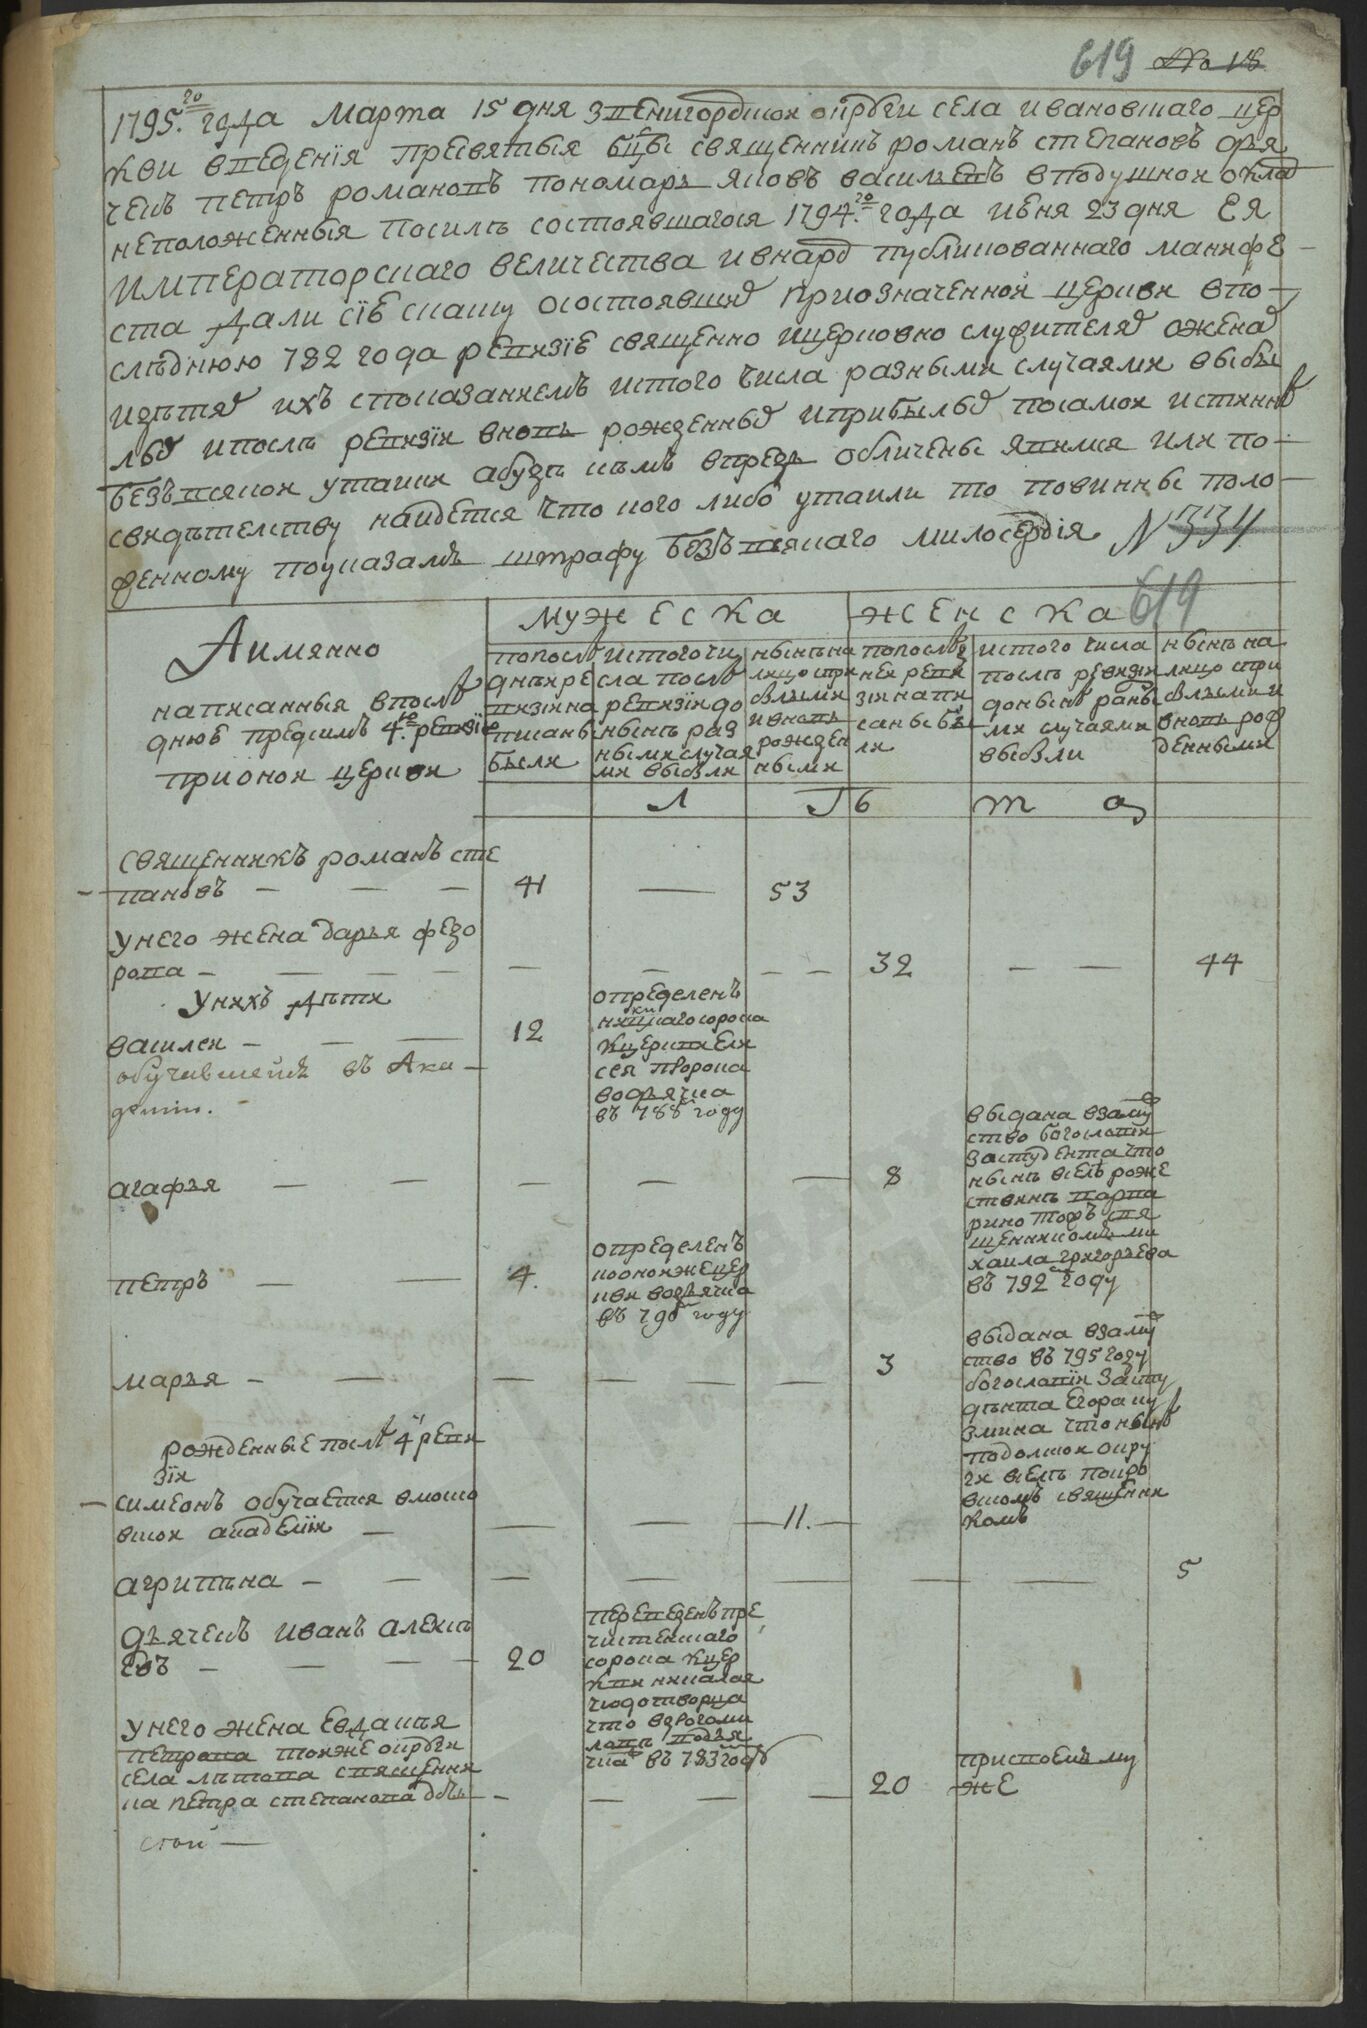 619 № 18
1795.го года Марта 15 дня Звенигородской округи села Ивановскаго цер
кви введенїя пресвятыя бцы священникъ романъ степановъ дья
чекъ петръ романовъ пономарь яковъ васильевъ вподушной оклад
неположенныя посилѣ состоявшагося 1794.го года июня 23 дня ЕЯ
Императорскаго величества ивнарод публикованнаго манифе
ста дали сїю скаску осостоявших приозначенной церкви впо
слѣднюю 782 года ревизїю священно ицерковно служителях оженах
идѣтях ихъ споказанїемъ истого числа разными случаями выбы
лых ипослѣ ревизїи вновь рожденных иприбылых посамой истинне
безъ всякой утайки абуде кѣмъ впредь обличены явимся или по
свидѣтельству найдется что кого либо утаили то повинны поло
женному поуказамъ штрафу безъ всякаго милосердїя N 334
619
Аимянно
написанныя впосле
днюю пред симъ 4.ю ревизїю
прионой церкви
мужеска
женска
попосле
дней ре
визїи на
писаны
были
истого чи
сла после
ревизїи до
нынѣ раз
ными случая
ми выбыли
нынѣ на
лицо спри
былыми
ивновь
рожден
ными
попослед
ней реви
зїи напи
саны бы
ли
истого числа
послѣ ревизїи
доныне разны
ми случаями
выбыли
нынѣ на
лицо спри
былыми и
вновь рож
денными
Л Ѣ т а
священникъ романъ сте
пановъ — 41 — 53
унего жена дарья федо
рова — 32 — 44
унихъ дѣти
василей — 12
обучавшейся въ Ака
демїи.
определенъ
никицкаго сорока
кцеркви Ели
сея пророка
водьячка
въ 788м году
агафья — 8
выдана взаму
ство богословїи
застудента что
нынѣ вселѣ роже
ствине
свя
щенникомъ ми
хаила григорьева
въ 792м году
петръ — 4.
определенъ
коной же цер
кви водьячка
въ 790м году
марья — 3
выдана взаму
ство въ 795 году
богословїи засту
дента Егора ку
змина что ныне
подолской окру
ги вселѣ покро
вскомъ священни
комъ
рожденные после 4й реви
зїи
симеонъ обучается вмоско
вской академїи — 11.
агрипѣна — 5
дьячекъ иванъ алексѣ
евъ — 20
переведенъ пре
чистенскаго
сорока кцер
кви николая
чюдотворца
что
подья
чка въ 783 году
унего жена Евдакѣя
петрова тойже округи
села священни
ка петра степанова дочь — 20
присвоемъ му
же
стой —